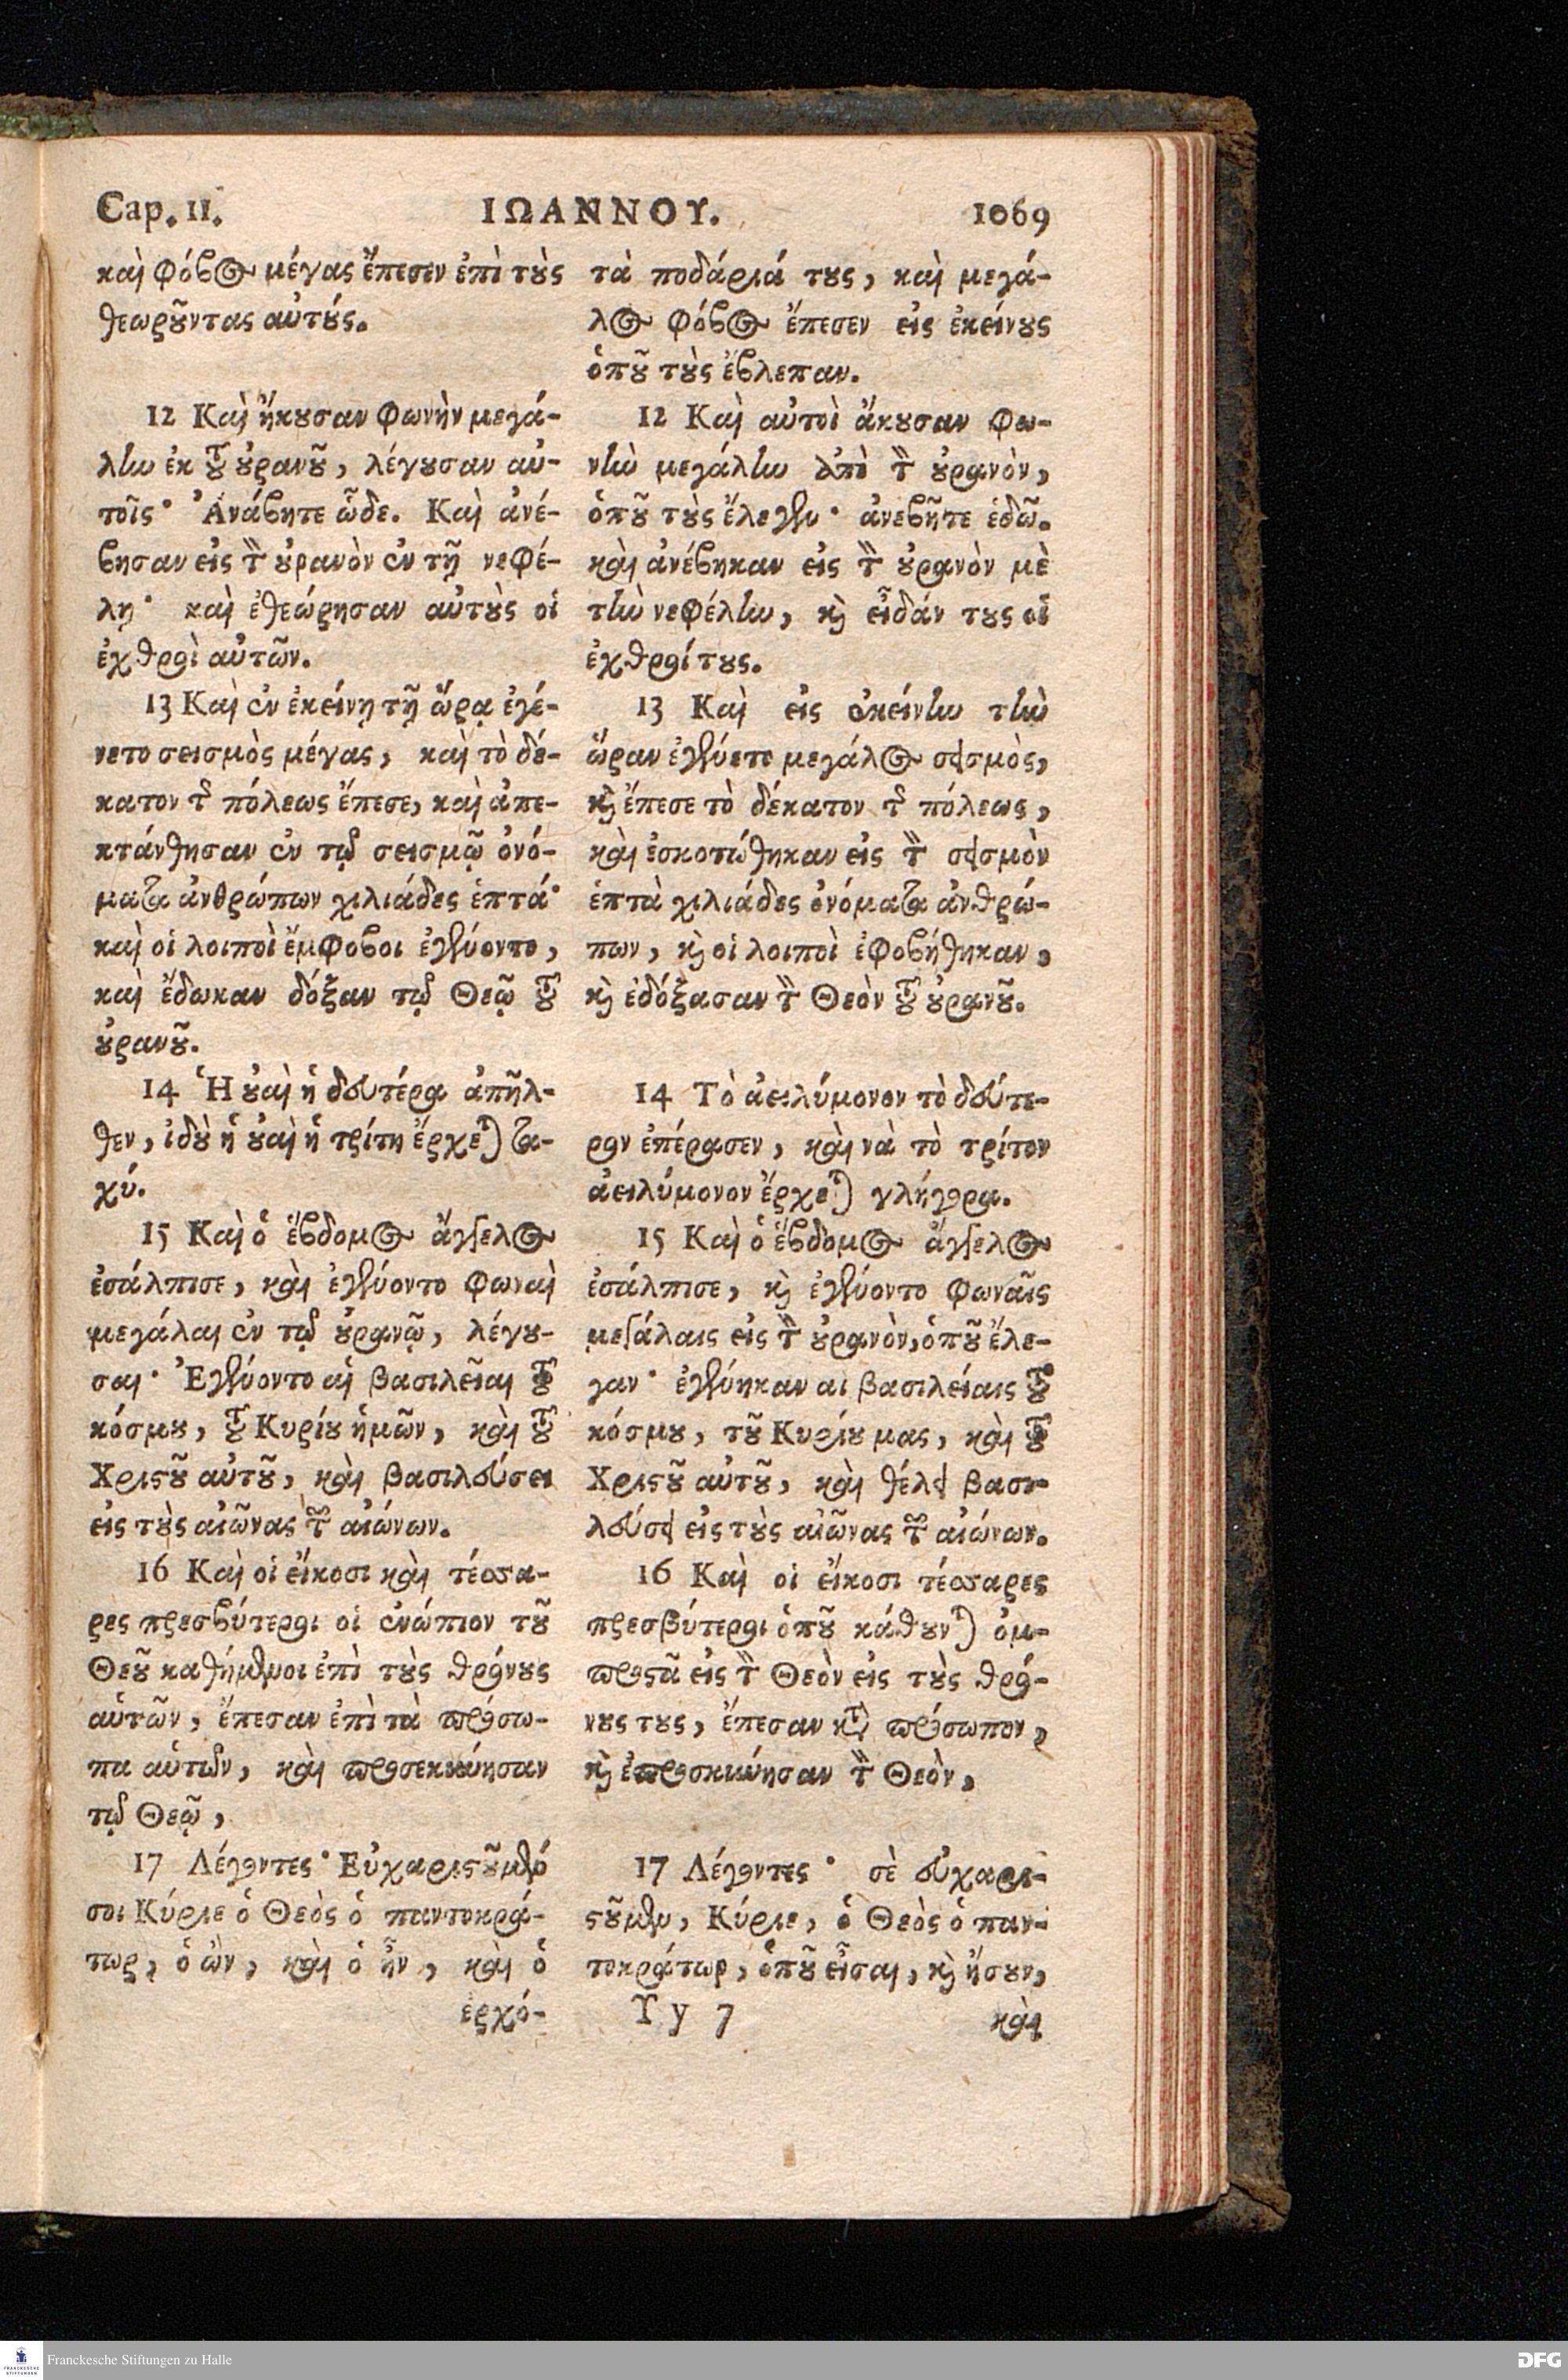 Cap. 11. ΙΩΑΝΝΟΥ. 1069
καὶ φόβος μέγας ἔπεσεν ἐπὶ τοὺς
θεωροῦντας αὐτούς.
12 Καὶ ἤκουσαν φωνὴν μεγά-
λην ἐκ τοῦ οὐρανοῦ, λέγουσαν αὐ-
τοῖς· Ἀνάβητε ὧδε. Καὶ ἀνέ-
βησαν εἰς τὸν οὐρανὸν ἐν τῇ νεφέ-
λῃ· καὶ ἐθεώρησαν αὐτοὺς οἱ
ἐχθροὶ αὐτῶν.
13 Καὶ ἐν ἐκείνῃ τῇ ὥρᾳ ἐγέ-
νετο σεισμὸς μέγας, καὶ τὸ δέ-
κατον τῆς πόλεως ἔπεσε, καὶ ἀπε-
κτάνθησαν ἐν τῷ σεισμῷ ὀνό-
ματα ἀνθρώπων χιλιάδες ἑπτά·
καὶ οἱ λοιποὶ ἔμφοβοι ἐγένοντο,
καὶ ἔδωκαν δόξαν τῷ Θεῷ τοῦ
οὐρανοῦ.
14 Ἡ οὐαὶ ἡ δευτέρα ἀπῆλ-
θεν, ἰδοὺ ἡ οὐαὶ ἡ τρίτη ἔρχεται τα-
χύ.
15 Καὶ ὁ ἕβδομος ἄγγελος
ἐσάλπισε, καὶ ἐγένοντο φωναὶ
μεγάλαι ἐν τῷ οὐρανῷ, λέγου-
σαι· Ἐγένοντο αἱ βασιλεῖαι τοῦ
κόσμου, τοῦ Κυρίου ἡμῶν, καὶ τοῦ
Χριστοῦ αὐτοῦ, καὶ βασιλεύσει
εἰς τοὺς αἰῶνας τῶν αἰώνων.
16 Καὶ οἱ εἴκοσι καὶ τέσσα-
ρες πρεσβύτεροι οἱ ἐνώπιον τοῦ
Θεοῦ καθήμενοι ἐπὶ τοὺς θρόνους
αὑτῶν, ἔπεσαν ἐπὶ τὰ πρόσω-
πα αὑτῶν, καὶ προσεκύνησαν
τῷ Θεῷ,
17 Λέγοντες· Εὐχαριστοῦμέν
σοι Κύριε ὁ Θεὸς ὁ παντοκρά-
τωρ, ὁ ὢν, καὶ ὁ ἦν, καὶ ὁ
ἐρχό-
τὰ ποδάριά τους, καὶ μεγά-
λος φόβος ἔπεσεν εἰς ἐκείνους
ὁποῦ τοὺς ἔβλεπαν.
12 Καὶ αὐτοὶ ἄκουσαν φω-
νὴν μεγάλην ἀπὸ τὸν οὐρανὸν,
ὁποῦ τοὺς ἔλεγεν· ἀνεβῆτε ἐδῶ.
καὶ ἀνέβηκαν εἰς τὸν οὐρανὸν μὲ
τὴν νεφέλην, καὶ εἶδάν τους οἱ
ἐχθροί τους.
13 Καὶ εἰς ἐκείνην τὴν
ὥραν ἐγένετο μεγάλος σεισμὸς,
καὶ ἔπεσε τὸ δέκατον τῆς πόλεως,
καὶ ἐσκοτώθηκαν εἰς τὸν σεισμὸν
ἑπτὰ χιλιάδες ὀνόματα ἀνθρώ-
πων, καὶ οἱ λοιποὶ ἐφοβήθηκαν,
καὶ ἐδόξασαν τὸν Θεὸν τοῦ οὐρανοῦ.
14 Τὸ ἀειλύμονον τὸ δεύτε-
ρον ἐπέρασεν, καὶ νὰ τὸ τρίτον
ἀειλύμονον ἔρχεται γλήγορα.
15 Καὶ ὁ ἕβδομος ἄγγελος
ἐσάλπισε, καὶ ἐγένοντο φωναῖς
μεγάλαις εἰς τὸν οὐρανὸν, ὁποῦ ἔλε-
γαν· ἐγένηκαν αἱ βασιλείαις τοῦ
κόσμου, τοῦ Κυρίου μας, καὶ τοῦ
Χριστοῦ αὐτοῦ, καὶ θέλει βασι-
λεύσει εἰς τοὺς αἰῶνας τῶν αἰώνων.
16 Καὶ οἱ εἴκοσι τέσσαρες
πρεσβύτεροι ὁποῦ κάθουνται ὀμ-
προστὰ εἰς τὸν Θεὸν εἰς τοὺς θρό-
νους τους, ἔπεσαν κατὰ πρόσωπον,
καὶ ἐπροσκύνησαν τὸν Θεὸν,
17 Λέγοντες· σὲ εὐχαρι-
στοῦμεν, Κύριε, ὁ Θεὸς ὁ παν-
τοκράτωρ, ὁποῦ εἶσαι, καὶ ἤσουν,
Yy 7 καὶ
Franckesche Stiftungen zu Halle
DFG